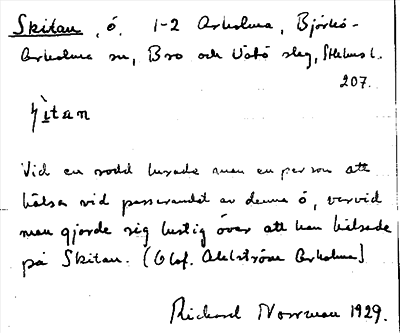 Skitan, ö. 1-2 Arholma, Björkö-
Arholma sn, Bro och Vätö slag, Sthlms l.
207.
ʃìtan
Vid en rodd lurade man en person att
hälsa vid passerandet av denna ö, varvid
man gjorde sig lustig över att han hälsade
på Skitan. (Olof. Ahlström Arholma)
Rickard Norrman 1929.